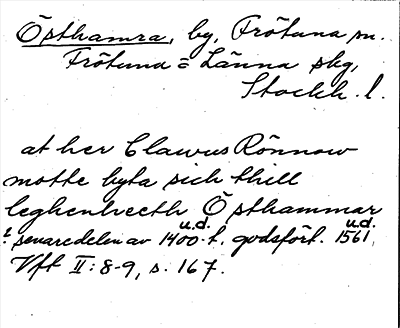 Östhamra, by, Frötuna sn.
Frötuna = Länna skg,
Stockh. l.
at her Clawus Rönnow
motte byta sich thill
leghenheeth Östhammar
u.d. u.d.
senare delen av 1400-t. godsfört. 1561,
Vft II: 8-9, s. 167.